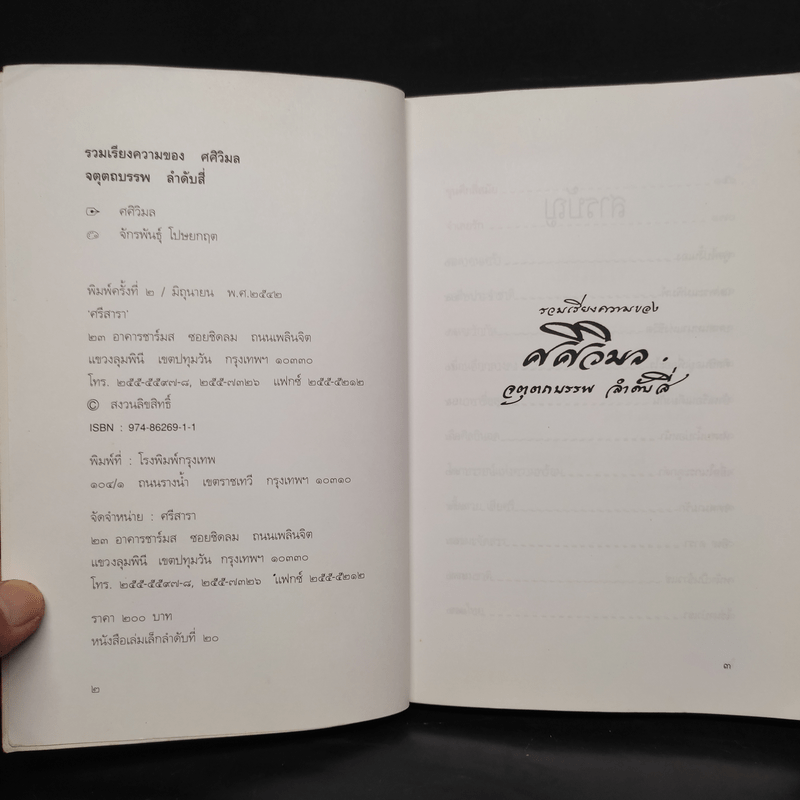 รวมเรียงความของ ศศิวิมล
จตุตถบรรพ ลำดับสี่
ศศิวิมล
จักรพันธุ์ โปษยกฤต
พิมพ์ครั้งที่ ๒ / มิถุนายน พ.ศ.๒๕๔๒
'ศรีสารา'
๒๓ อาคารชาร์มส ซอยชิดลม ถนนเพลินจิต
แขวงลุมพินี เขตปทุมวัน กรุงเทพฯ ๑๐๓๓๐
โทร. ๒๕๕-๕๕๙๗-๘, ๒๕๕-๗๓๒๖ แฟกซ์ ๒๕๕-๕๒๑๒
© สงวนลิขสิทธิ์
ISBN : 974-86269-1-1
พิมพ์ที่ : โรงพิมพ์กรุงเทพ
๑๐๔/๑ ถนนรางน้ำ เขตราชเทวี กรุงเทพฯ ๑๐๓๑๐
จัดจำหน่าย : ศรีสารา
๒๓ อาคารชาร์มส ซอยชิดลม ถนนเพลินจิต
แขวงลุมพินี เขตปทุมวัน กรุงเทพฯ ๑๐๓๓๐
โทร. ๒๕๕-๕๕๙๗-๘, ๒๕๕-๗๓๒๖ แฟกซ์ ๒๕๕-๕๒๑๒
ราคา ๒๐๐ บาท
หนังสือเล่มเล็กลำดับที่ ๒๐
๒
รวมเรียงความของ
ศศิวิมล.
จตุตถบรรพ ลำดับสี่
๓